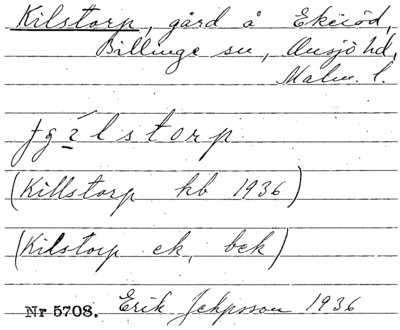 Kilstorp, gård å Ekeröd,
Billinge sn, Onsjö hd,
Malm. l.
t𝑔ilstorp
(Killstorp kb 1936)
(Kilstorp ek, bek)
Nr 5708. Erik Jeppsson 1936